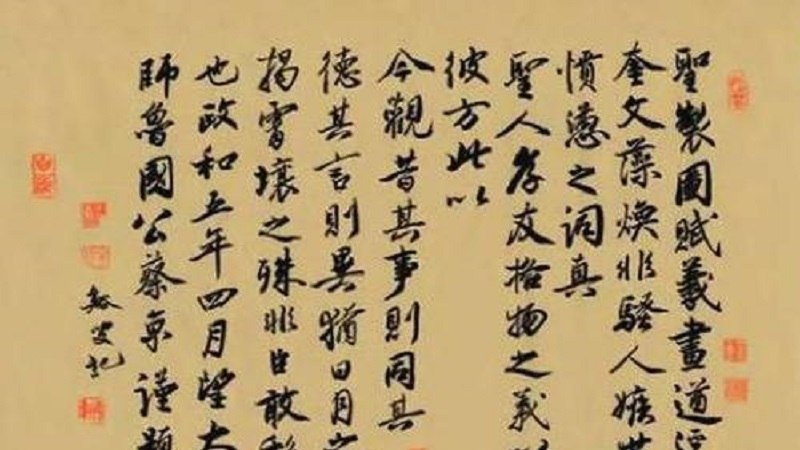 聖製圖賦羲畫道
奎文藻煥非騷人嫉世
憤懣之詞真
聖人孝友格物之義以
彼方此以
今觀昔其事則同其
德其言則異猶日月之
揭霄壤之殊非臣敢
也政和五年四月望太
師魯國公蔡京謹題
叟記